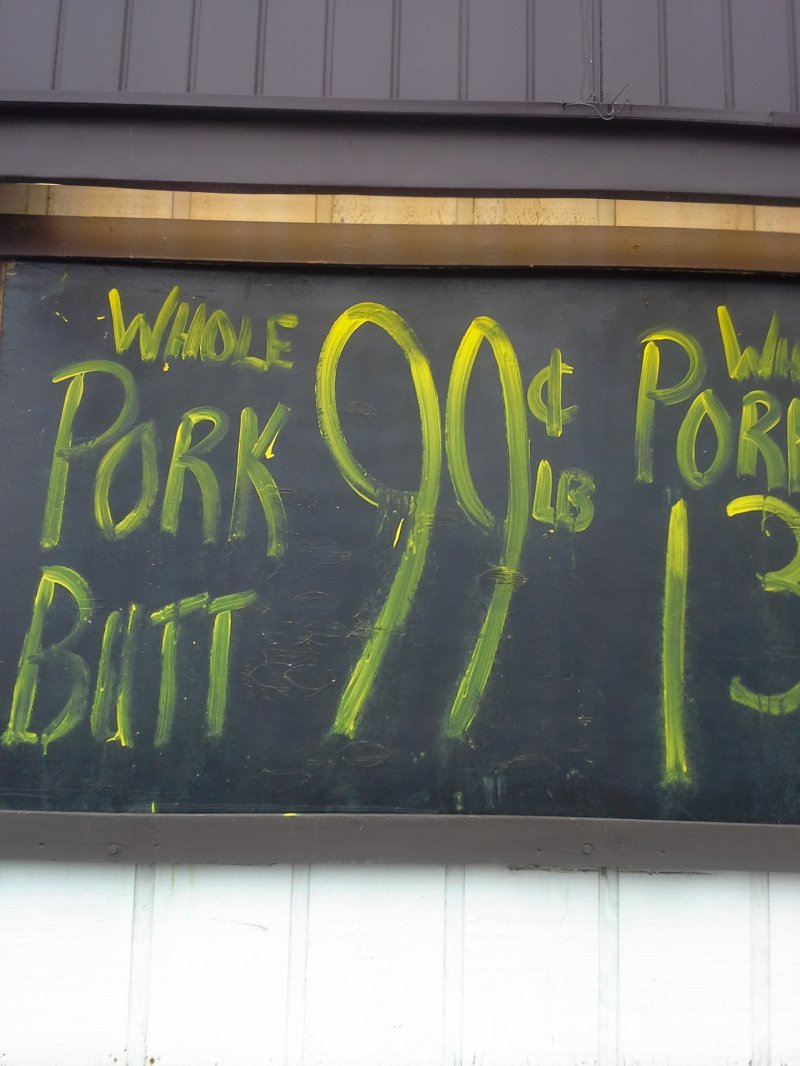 WHOLE
PORK
BUTT
99¢
LB
PORK
13